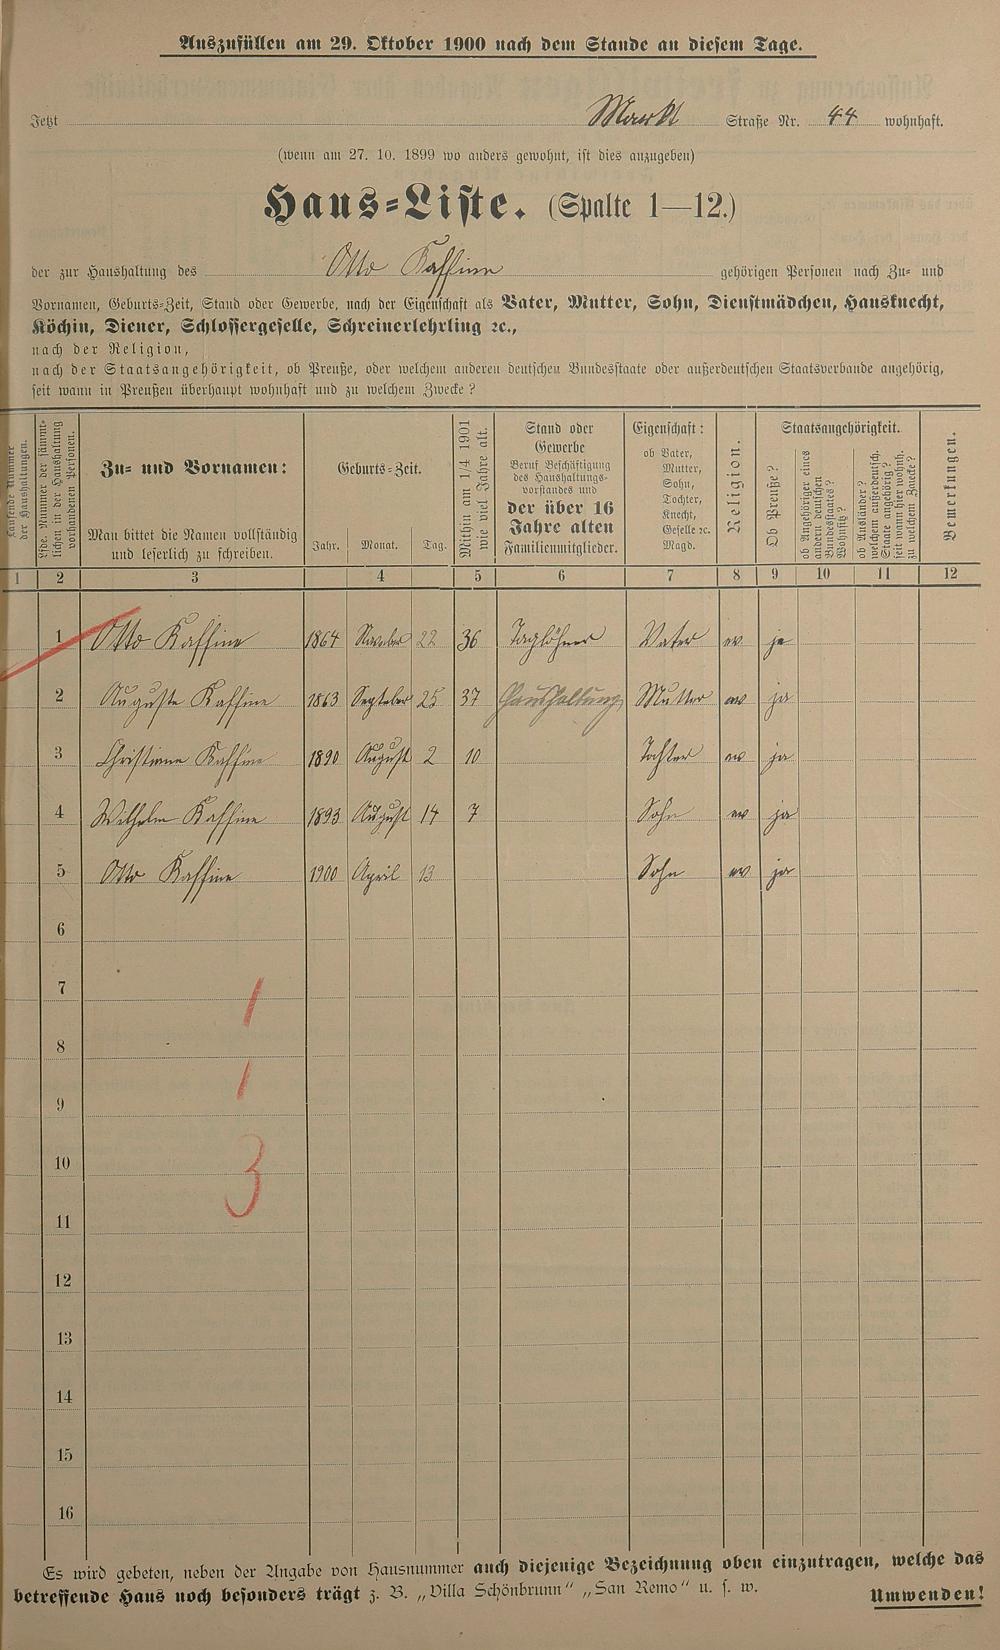 Auszufüllen am 29. Oktober 1900 nach dem Stande an diesem Tage.
Jetzt Markt Straße Nr. 44 wohnhaft.
(wenn am 27. 10. 1899 wo anders gewohnt, ist dies anzugeben)
Haus-Liste. (Spalte 1—12.)
der zur Haushaltung des Otto Kaffine gehörigen Personen nach Zu- und
Vornamen, Geburts-Zeit, Stand oder Gewerbe, nach der Eigenschaft als Vater, Mutter, Sohn, Dienstmädchen, Hausknecht,
Köchin, Diener, Schlossergeselle, Schreinerlehrling ꝛc.,
nach der Religion,
nach der Staatsangehörigkeit, ob Preuße, oder welchem anderen deutschen Bundesstaate oder außerdeutschen Staatsverbande angehörig,
seit wann in Preußen überhaupt wohnhaft und zu welchem Zwecke?
Laufende Nummer
der Haushaltungen.
Lfde. Nummer der sämmt-
lichen in der Haushaltung
vorhandenen Personen.
Zu- und Vornamen:
Man bittet die Namen vollständig
und leserlich zu schreiben.
Geburts-Zeit.
Jahr. Monat. Tag.
Mithin am 1/4 1901
wie viel Jahre alt.
Stand oder
Gewerbe
Beruf Beschäftigung
des Haushaltungs-
vorstandes und
der über 16
Jahre alten
Familienmitglieder.
Eigenschaft:
ob Vater,
Mutter,
Sohn,
Tochter,
Knecht,
Geselle ꝛc.
Magd.
Religion.
Staatsangehörigkeit.
Ob Preuße?
ob Angehöriger eines
andern deutschen
Bundesstaates?
Wohnsitz?
ob Ausländer?
welchem außerdeutsch.
Staate angehörig?
seit wann hier wohnh.
zu welchem Zwecke?
Bemerkungen.
1 2 3 4 5 6 7 8 9 10 11 12
1 Otto Kaffine 1864 November 22 36 Taglöhner Vater ev ja
2 Auguste Kaffine 1863 September 25 37 Haushaltung Mutter ev ja
3 Christiane Kaffine 1890 August 2 10 Tochter ev ja
4 Wilhelm Kaffine 1893 August 14 7 Sohn ev ja
5 Otto Kaffine 1900 April 13 Sohn ev ja
6
7
1
8
9
1
10
3
11
12
13
14
15
16
Es wird gebeten, neben der Angabe von Hausnummer auch diejenige Bezeichnung oben einzutragen, welche das
betreffende Haus noch besonders trägt z. B. „Villa Schönbrunn“ „San Remo“ u. s. w. Umwenden!